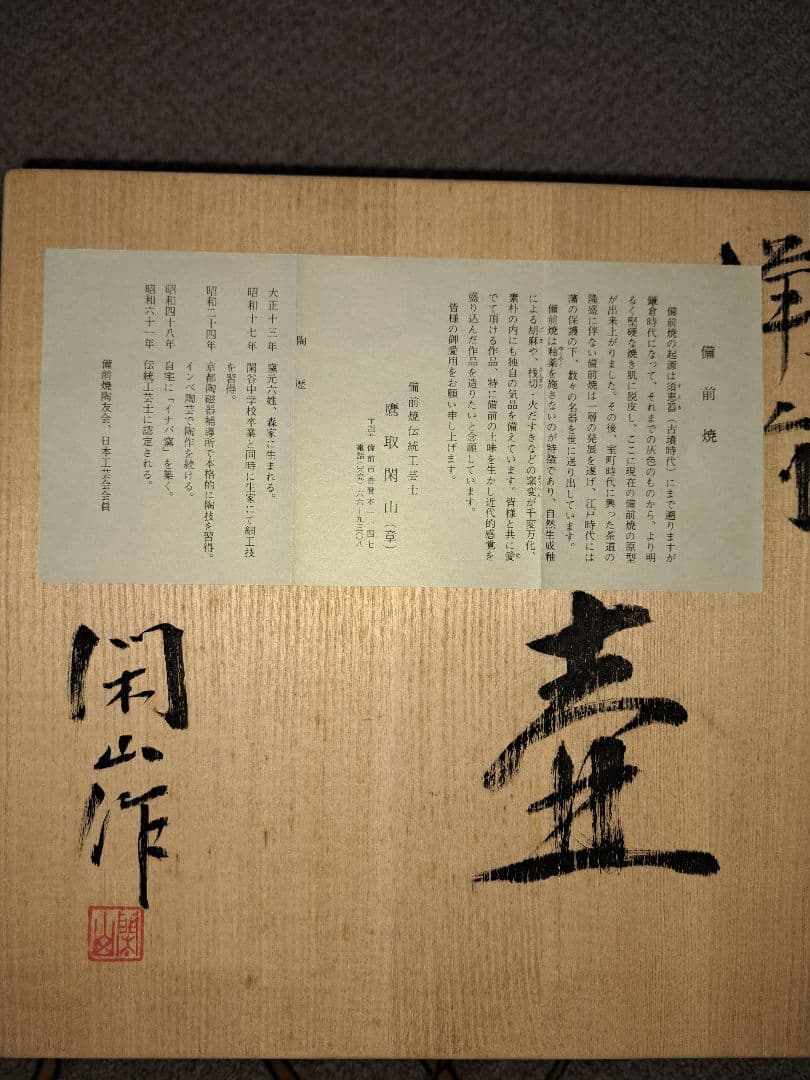 備前焼
備前焼の起源は須恵器（古墳時代）にまで遡りますが
鎌倉時代になって、それまでの灰色のものから、より明
るく堅硬な焼き肌に脱皮し、ここに現在の備前焼の原型
が出来上がりました。その後、室町時代に興った茶道の
隆盛に伴ない備前焼は一層の発展を遂げ、江戸時代には
藩の保護の下、数々の名器を世に送り出しています。
備前焼は釉薬を施さないのが特徴であり、自然生成釉
による胡麻や、桟切・火だすきなどの窯変が千変万化、
素朴の内にも独自の気品を備えています。皆様と共に愛
でて頂ける作品、特に備前の土味を生かし近代的感覚を
盛り込んだ作品を造りたいと念願しています。
皆様の御愛用をお願い申し上げます。
備前焼伝統工芸士
鷹取閑山（章）
備前市香登本一一四七
電話 六六―九三〇八
陶歴
大正十三年 窯元六姓、森家に生まれる。
昭和十七年 閑谷中学校卒業と同時に生家にて細工技
を習得。
昭和二十四年 京都陶磁器補導所で本格的に陶技を習得。
インベ陶芸で陶作を続ける。
昭和四十八年 自宅に「イナバ窯」を築く。
昭和六十一年 伝統工芸士に認定される。
備前焼陶友会、日本工芸会会員
備前
壷
閑山作